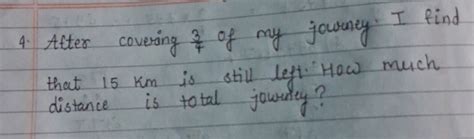 4. After covering 3/4 of my journey. I find
that 15 Km is still left. How much
distance is total journey?